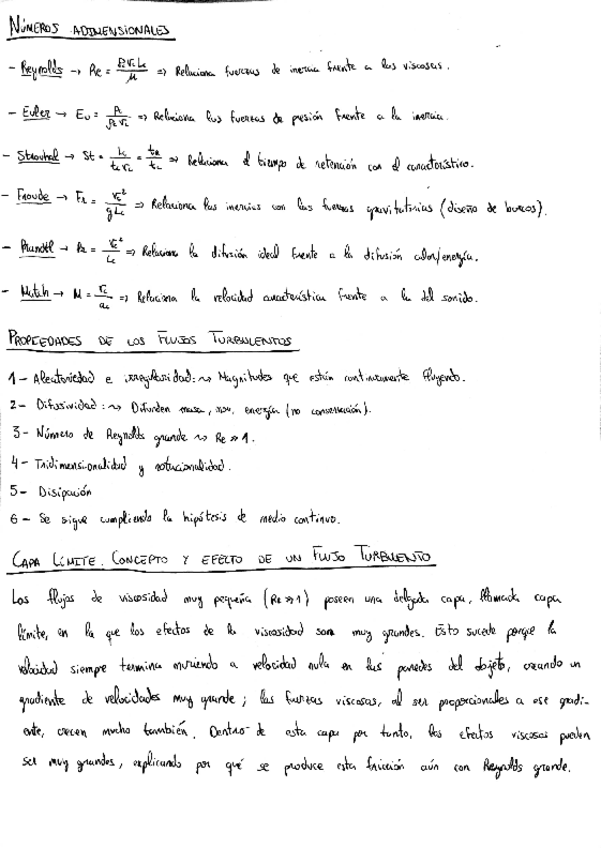 NÚMEROS ADIMENSIONALES
- Reynolds → Re = ρc vc Lc / μ => Relaciona fuerzas de inercia frente a las viscosas.
- Euler → Eu = Pc / ρc vc => Relaciona las fuerzas de presión frente a la inercia.
- Strouhal → St = Lc / tc vc = tR / tc => Relaciona el tiempo de retención con el característico.
- Froude → Fr = vc² / g Lc => Relaciona las inercias con las fuerzas gravitatorias (diseño de buques).
- Prandtl → Pr = vc² / Lc => Relaciona la difusión ideal frente a la difusión calor/energía.
- Match → M = vc / ac => Relaciona la velocidad característica frente a la del sonido.
PROPIEDADES DE LOS FLUJOS TURBULENTOS
1 - Aleatoriedad e irregularidad: ~> Magnitudes que están continuamente fluyendo.
2 - Difusividad: ~> Difunden masa, energía (no conservación).
3 - Número de Reynolds grande ~> Re >> 1.
4 - Tridimensionalidad y rotacionalidad.
5 - Disipación
6 - Se sigue cumpliendo la hipótesis de medio continuo.
CAPA LÍMITE. CONCEPTO Y EFECTO DE UN FLUJO TURBULENTO
Los flujos de viscosidad muy pequeña (Re >> 1) poseen una delgada capa, llamada capa
límite, en la que los efectos de la viscosidad son muy grandes. Esto sucede porque la
velocidad siempre termina muriendo a velocidad nula en las paredes del objeto, creando un
gradiente de velocidades muy grande; las fuerzas viscosas, al ser proporcionales a ese gradi-
ente, crecen mucho también. Dentro de esta capa por tanto, los efectos viscosos pueden
ser muy grandes, explicando por qué se produce esta fricción aún con Reynolds grande.